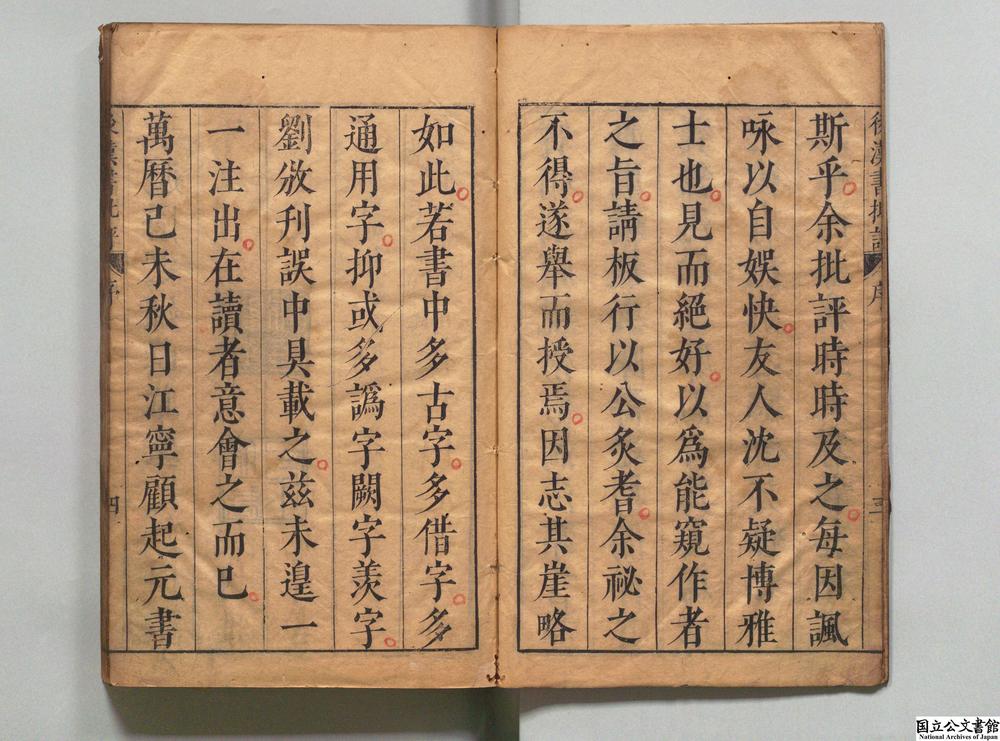 斯乎余批評時時及之每因諷
咏以自娛快友人沈不疑博雅
士也見而絕好以爲能窺作者
之旨請板行以公炙耆余祕之
不得遂舉而授焉因志其崖略
如此若書中多古字多借字多
通用字抑或多譌字闕字羨字
劉攽刋誤中具載之兹未遑一
一注出在讀者意會之而已
萬曆己未秋日江寧顧起元書
四
国立公文書館
National Archives of Japan